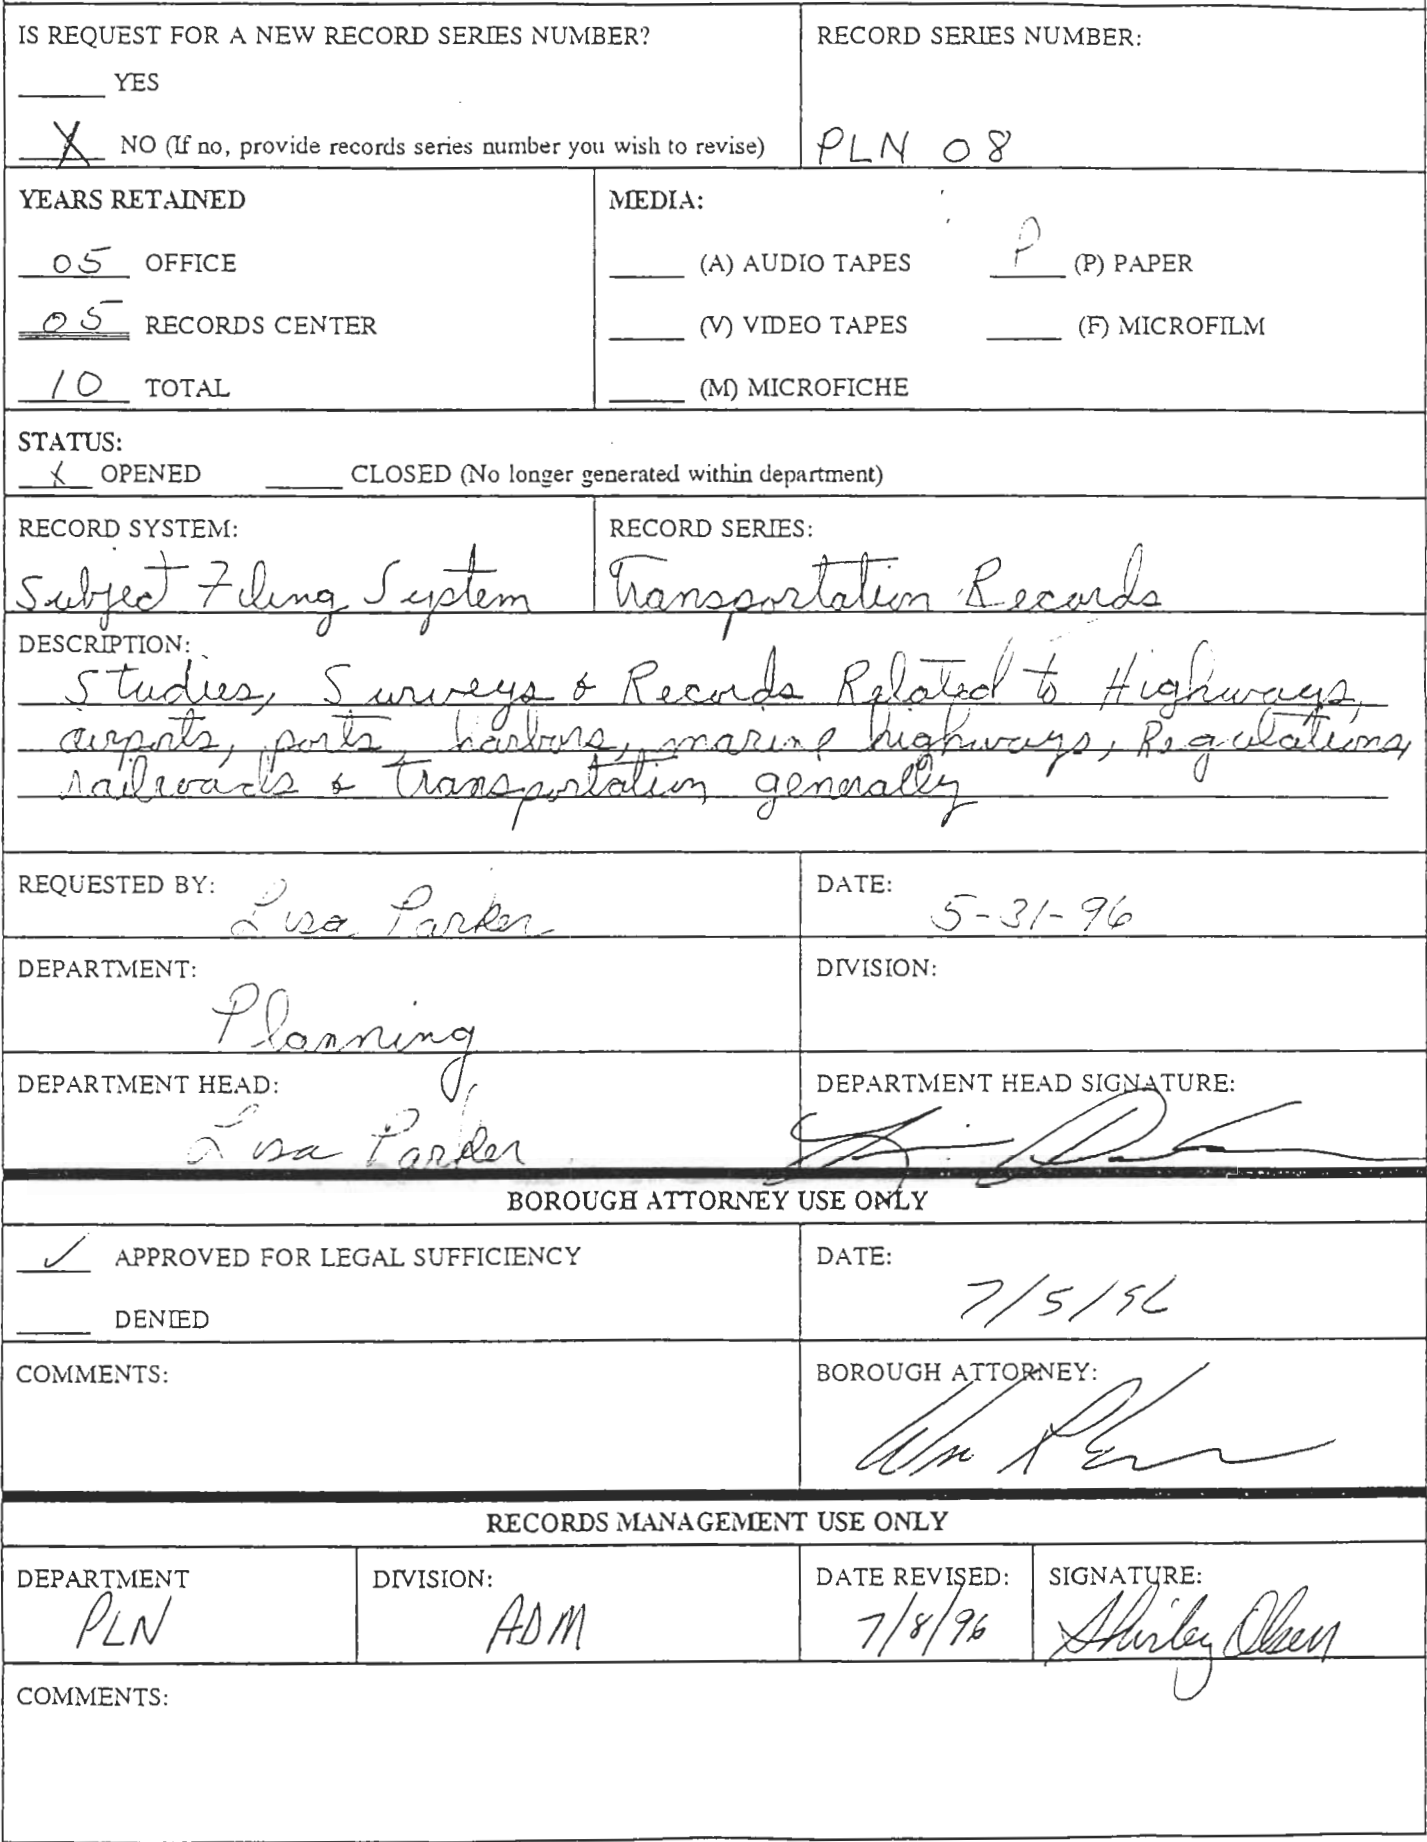 IS REQUEST FOR A NEW RECORD SERIES NUMBER?
YES
X NO (If no, provide records series number you wish to revise)
RECORD SERIES NUMBER:
PLN 08
YEARS RETAINED
05 OFFICE
05 RECORDS CENTER
10 TOTAL
MEDIA:
(A) AUDIO TAPES P (P) PAPER
(V) VIDEO TAPES (F) MICROFILM
(M) MICROFICHE
STATUS:
X OPENED CLOSED (No longer generated within department)
RECORD SYSTEM:
Subject Filing System
RECORD SERIES:
Transportation Records
DESCRIPTION:
Studies, Surveys & Records Related to Highways,
airports, ports, harbors, marine highways, Regulations,
railroads & transportation generally
REQUESTED BY:
Lisa Parker
DATE:
5-31-96
DEPARTMENT:
Planning
DIVISION:
DEPARTMENT HEAD:
Lisa Parker
DEPARTMENT HEAD SIGNATURE:
BOROUGH ATTORNEY USE ONLY
✓ APPROVED FOR LEGAL SUFFICIENCY
DENIED
DATE:
7/5/96
COMMENTS:
BOROUGH ATTORNEY:
RECORDS MANAGEMENT USE ONLY
DEPARTMENT
PLN
DIVISION:
ADM
DATE REVISED:
7/8/96
SIGNATURE:
Shirley Olsen
COMMENTS: